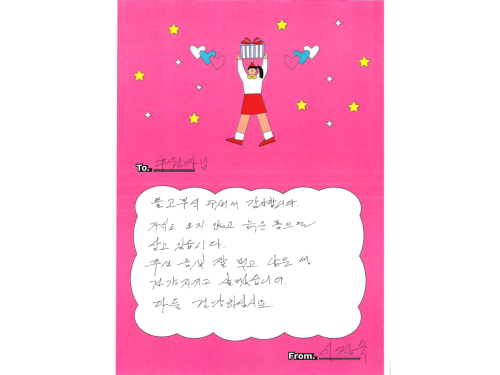 To. 후원자님
물고부식 주셔서 감사합니다.
자식도 오지 않고 늙은 몸으로
살고 있습니다.
주신 음식 잘 먹고 남은 생
건강지키고 살겠습니다.
다들 건강하십시요.
From. 서정숙